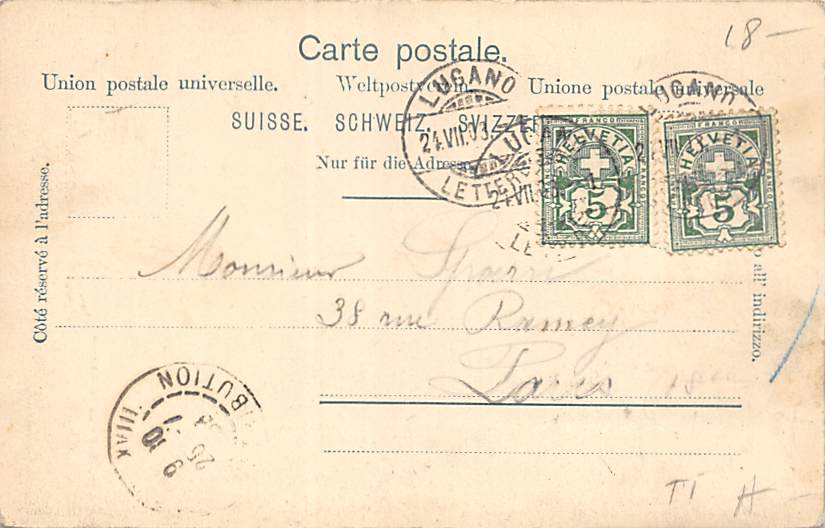 18-
Carte postale.
Union postale universelle. Weltpostverein. Unione postale universale
SUISSE. SCHWEIZ. SVIZZERA
Nur für die Adresse
Côté réservé à l'adresse.
o all' indirizzo.
LUGANO
24.VII.03
LETTER
LUGANO
FRANCO
HELVETIA
5
FRANCO
HELVETIA
5
Monsieur
38 rue Ramey
Paris 18
BUTION
25
TI H-